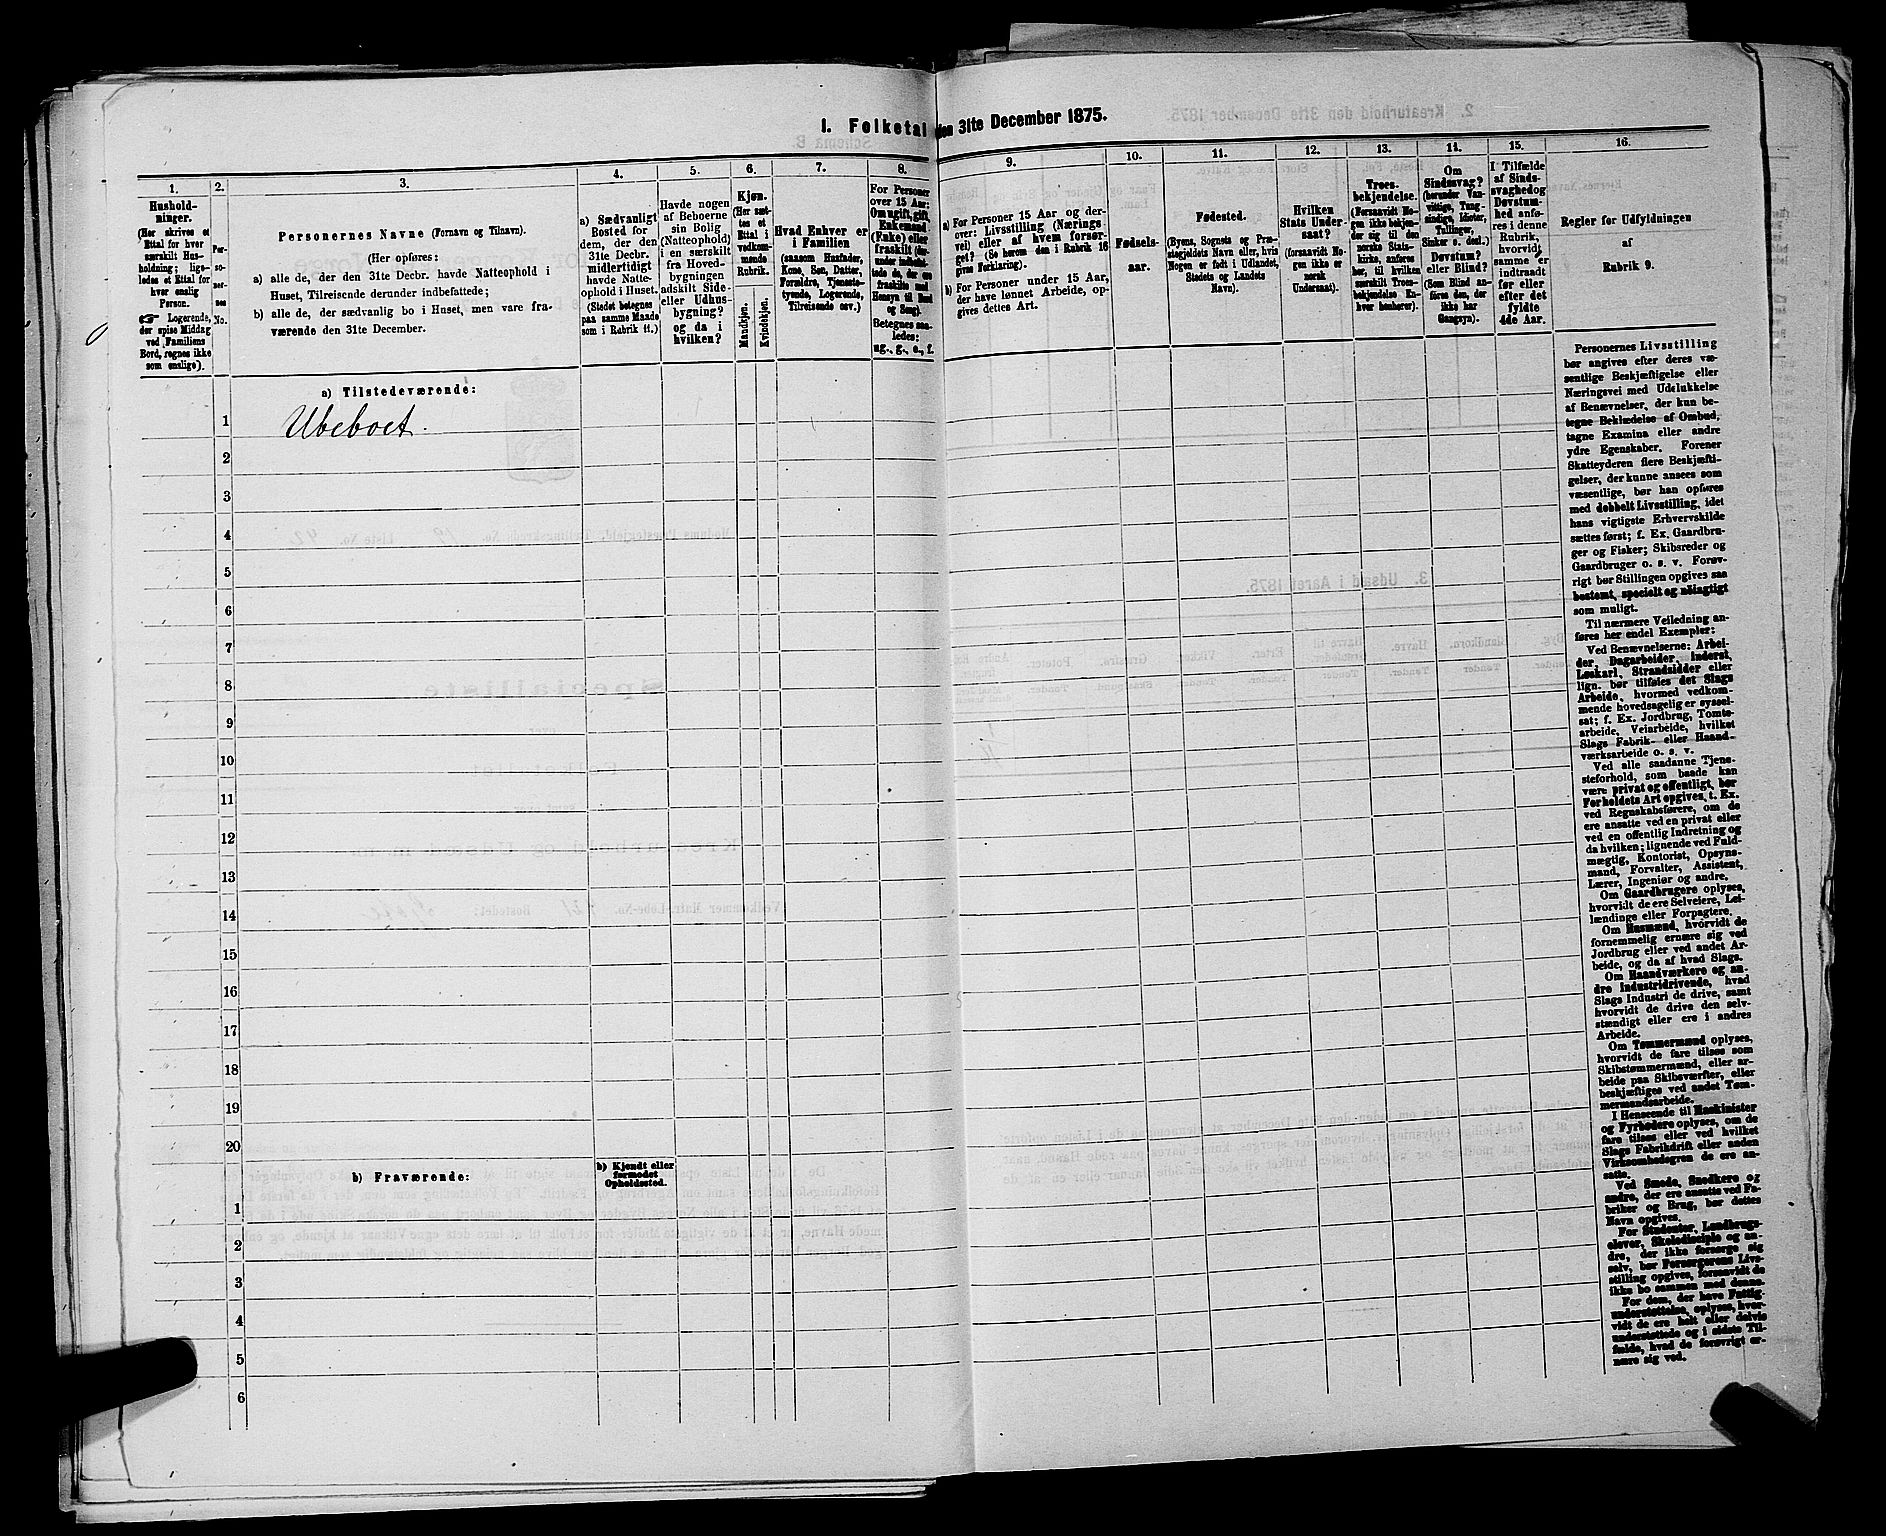 I. Folketal den 31te December 1875.
1.
2.
3.
4.
5.
6.
7.
8.
9.
10.
11.
12.
13.
14.
15.
16.
Hushold-
ninger.
(Her skrives et
Ettal for hver
særskilt Hus-
holdning; lige-
ledes et Ettal for
hver enslig
Person.
☞ Logerende,
der spise Middag
ved Familiens
Bord, regnes ikke
som enslige).
Per-
so-
ner-
nes
No.
Personernes Navne (Fornavn og Tilnavn).
(Her opføres:
a) alle de, der den 31te Decbr. havde Natteophold i
Huset, Tilreisende derunder indbefattede;
b) alle de, der sædvanlig bo i Huset, men vare fra-
værende den 31te December.
a) Sædvanligt
Bosted for
dem, der den
31te Decbr.
midlertidigt
havde Natte-
ophold i Huset.
(Stedet betegnes
paa samme Maade
som i Rubrik 11.)
Havde nogen
af Beboerne
sin Bolig
(Natteophold)
i en særskilt
fra Hoved-
bygningen
adskilt Side-
eller Udhus-
bygning?
og da i
hvilken?
Kjøn.
(Her sæt-
tes et
Ettal i
vedkom-
mende
Rubrik.)
Mandkjøn.
Kvindekjøn.
Hvad Enhver er
i Familien
(saasom Husfader,
Kone, Søn, Datter,
Forældre, Tjeneste-
tyende, Logerende,
Tilreisende osv.)
For Personer
over 15 Aar:
Om ugift, gift,
Enkemand
(Enke) eller
fraskilt (der-
under indbefat-
tede de, der ere
fraskilte med
Hensyn til Bord
og Seng).
Betegnes saa-
ledes:
ug., g., e., f.
a) For Personer 15 Aar og der-
over: Livsstilling (Nærings-
vei) eller af hvem forsør-
get? (Se herom den i Rubrik 16
givne Forklaring).
b) For Personer under 15 Aar,
der have lønnet Arbeide, op-
gives dettes Art.
Fødsels-
aar.
Fødested.
(Byens, Sognets og Præ-
stegjeldets Navn eller, hvis
Nogen er født i Udlandet,
Stedets og Landets
Navn).
Hvilken
Stats Under-
saat?
(forsaavidt No-
gen ikke er
norsk
Undersaat).
Troes-
bekjendelse.
(Forsaavidt No-
gen ikke bekjen-
der sig til den
norske Stats-
kirke, anføres
her, til hvilken
særskilt Troes-
bekjendelse En-
hver henhører).
Om
Sindssvag?
(herunder Van-
vittige, Tung-
sindige, Idioter,
Tullinger,
Sinker o. desl.)
Døvstum?
eller Blind?
(Som Blind an-
føres den, der
ikke har
Gangsyn).
I Tilfælde
af Sinds-
svaghed og
Døvstum-
hed anfø-
res i denne
Rubrik,
hvorvidt
samme er
indtraadt
før eller
efter det
fyldte
4de Aar.
Regler for Udfyldningen
af
Rubrik 9.
a) Tilstedeværende:
1 Ubeboet.
2
3
4
5
6
7
8
9
10
11
12
13
14
15
16
17
18
19
20
b) Fraværende:
b) Kjendt eller
formodet
Opholdssted.
1
2
3
4
5
6
Personernes Livsstilling
bør angives efter deres væ-
sentlige Beskjæftigelse eller
Næringsvei med Udelukkelse
af Benævnelser, der kun be-
tegne Beklædelse af Ombud,
tagne Examina eller andre
ydre Egenskaber. Forener
Skatteyderen flere Beskjæfti-
gelser, der kunne ansees som
væsentlige, bør han opføres
med dobbelt Livsstilling, idet
hans vigtigste Erhvervskilde
sættes først; f. Ex. Gaardbru-
ger og Fisker; Skibsreder og
Gaardbruger o. s. v. Forøv-
rigt bør Stillingen opgives saa
bestemt, specielt og nøiagtigt
som muligt.
Til nærmere Veiledning an-
føres her endel Exempler:
Ved Benævnelserne: Arbei-
der, Dagarbeider, Inderst,
Løskarl, Strandsidder eller
lign. bør tilføies det Slags
Arbeide, hvormed vedkom-
mende hovedsagelig er syssel-
sat; f. Ex. Jordbrug, Tomte-
arbeide, Veiarbeide, hvilket
Slags Fabrik- eller Haand-
værksarbeide o. s. v.
Ved alle saadanne Tjene-
steforhold, som baade kan
være privat og offentligt, bør
Forholdets Art opgives, t. Ex.
ved Regnskabsførere, om de
ere ansatte ved en privat eller
ved en offentlig Indretning og
da hvilken; lignende ved Fuld-
mægtig, Kontorist, Opsyns-
mand, Forvalter, Assistent,
Lærer, Ingeniør og andre.
Om Gaardbrugere oplyses,
hvorvidt de ere Selveiere, Lei-
lændinge eller Forpagtere.
Om Husmænd, hvorvidt de
fornemmelig ernære sig ved
Jordbrug eller ved andet Ar-
beide, og da af hvad Slags.
Om Haandværkere og an-
dre Industridrivende, hvad
Slags Industri de drive, samt
hvorvidt de drive den selv-
stændigt eller ere i andres
Arbeide.
Om Tømmermænd oplyses,
hvorvidt de fare tilsøs som
Skibstømmermænd, eller ar-
beide paa Skibsværfter, eller
beskjæftiges ved andet Tøm-
mermandsarbeide.
I Henseende til Maskinister
og Fyrbødere oplyses, om de
fare tilsøs eller ved hvilket
Slags Fabrikdrift eller anden
Virksomhedsgren de ere an-
satte.
Ved Smede, Snedkere og
andre, der ere ansatte ved Fa-
briker og Brug, bør dettes
Navn opgives.
For Studenter, Landbrugs-
elever, Skoledisciple og an-
dre, der ikke forsørge sig
selv, bør Forsørgerens Livs-
stilling opgives, forsaavidt de
ikke bo sammen med denne.
For dem, der have Fattig-
understøttelse, oplyses, hvor-
vidt de ere helt eller delvis
understøttede og i sidste Til-
fælde, hvad de forøvrigt er-
nære sig ved.